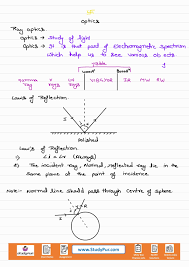 Optics
Ray optics
Optics → Study of light
Optics → It is that part of Electromagnetic spectrum
which help us to see various objects.
visible
γ rays X rays UV rays VIBGYOR IR MW RW
Laws of Reflection
Polished
Laws of Reflection
1) ∠i = ∠r (Always)
2) The incident ray, Normal, reflected ray lie in the
same plane at the point of incidence
Note:- Normal line should pass through Centre of sphere
www.StudyFur.com